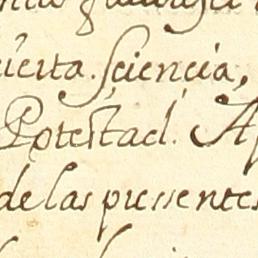 cierta. sciencia,
Potestad. A
de las pressentes